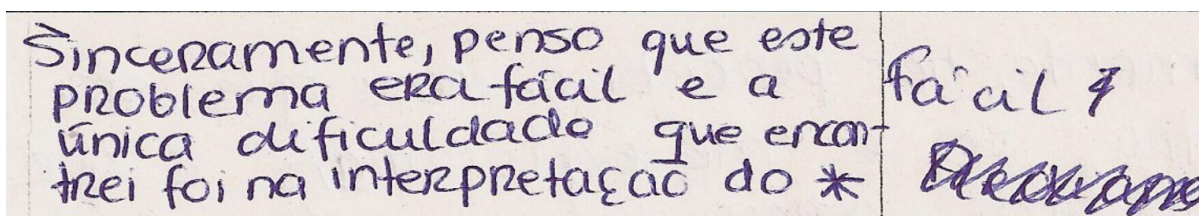 Sinceramente, penso que este
problema era fácil e a
única dificuldade que encon-
trei foi na interpretação do *
fácil